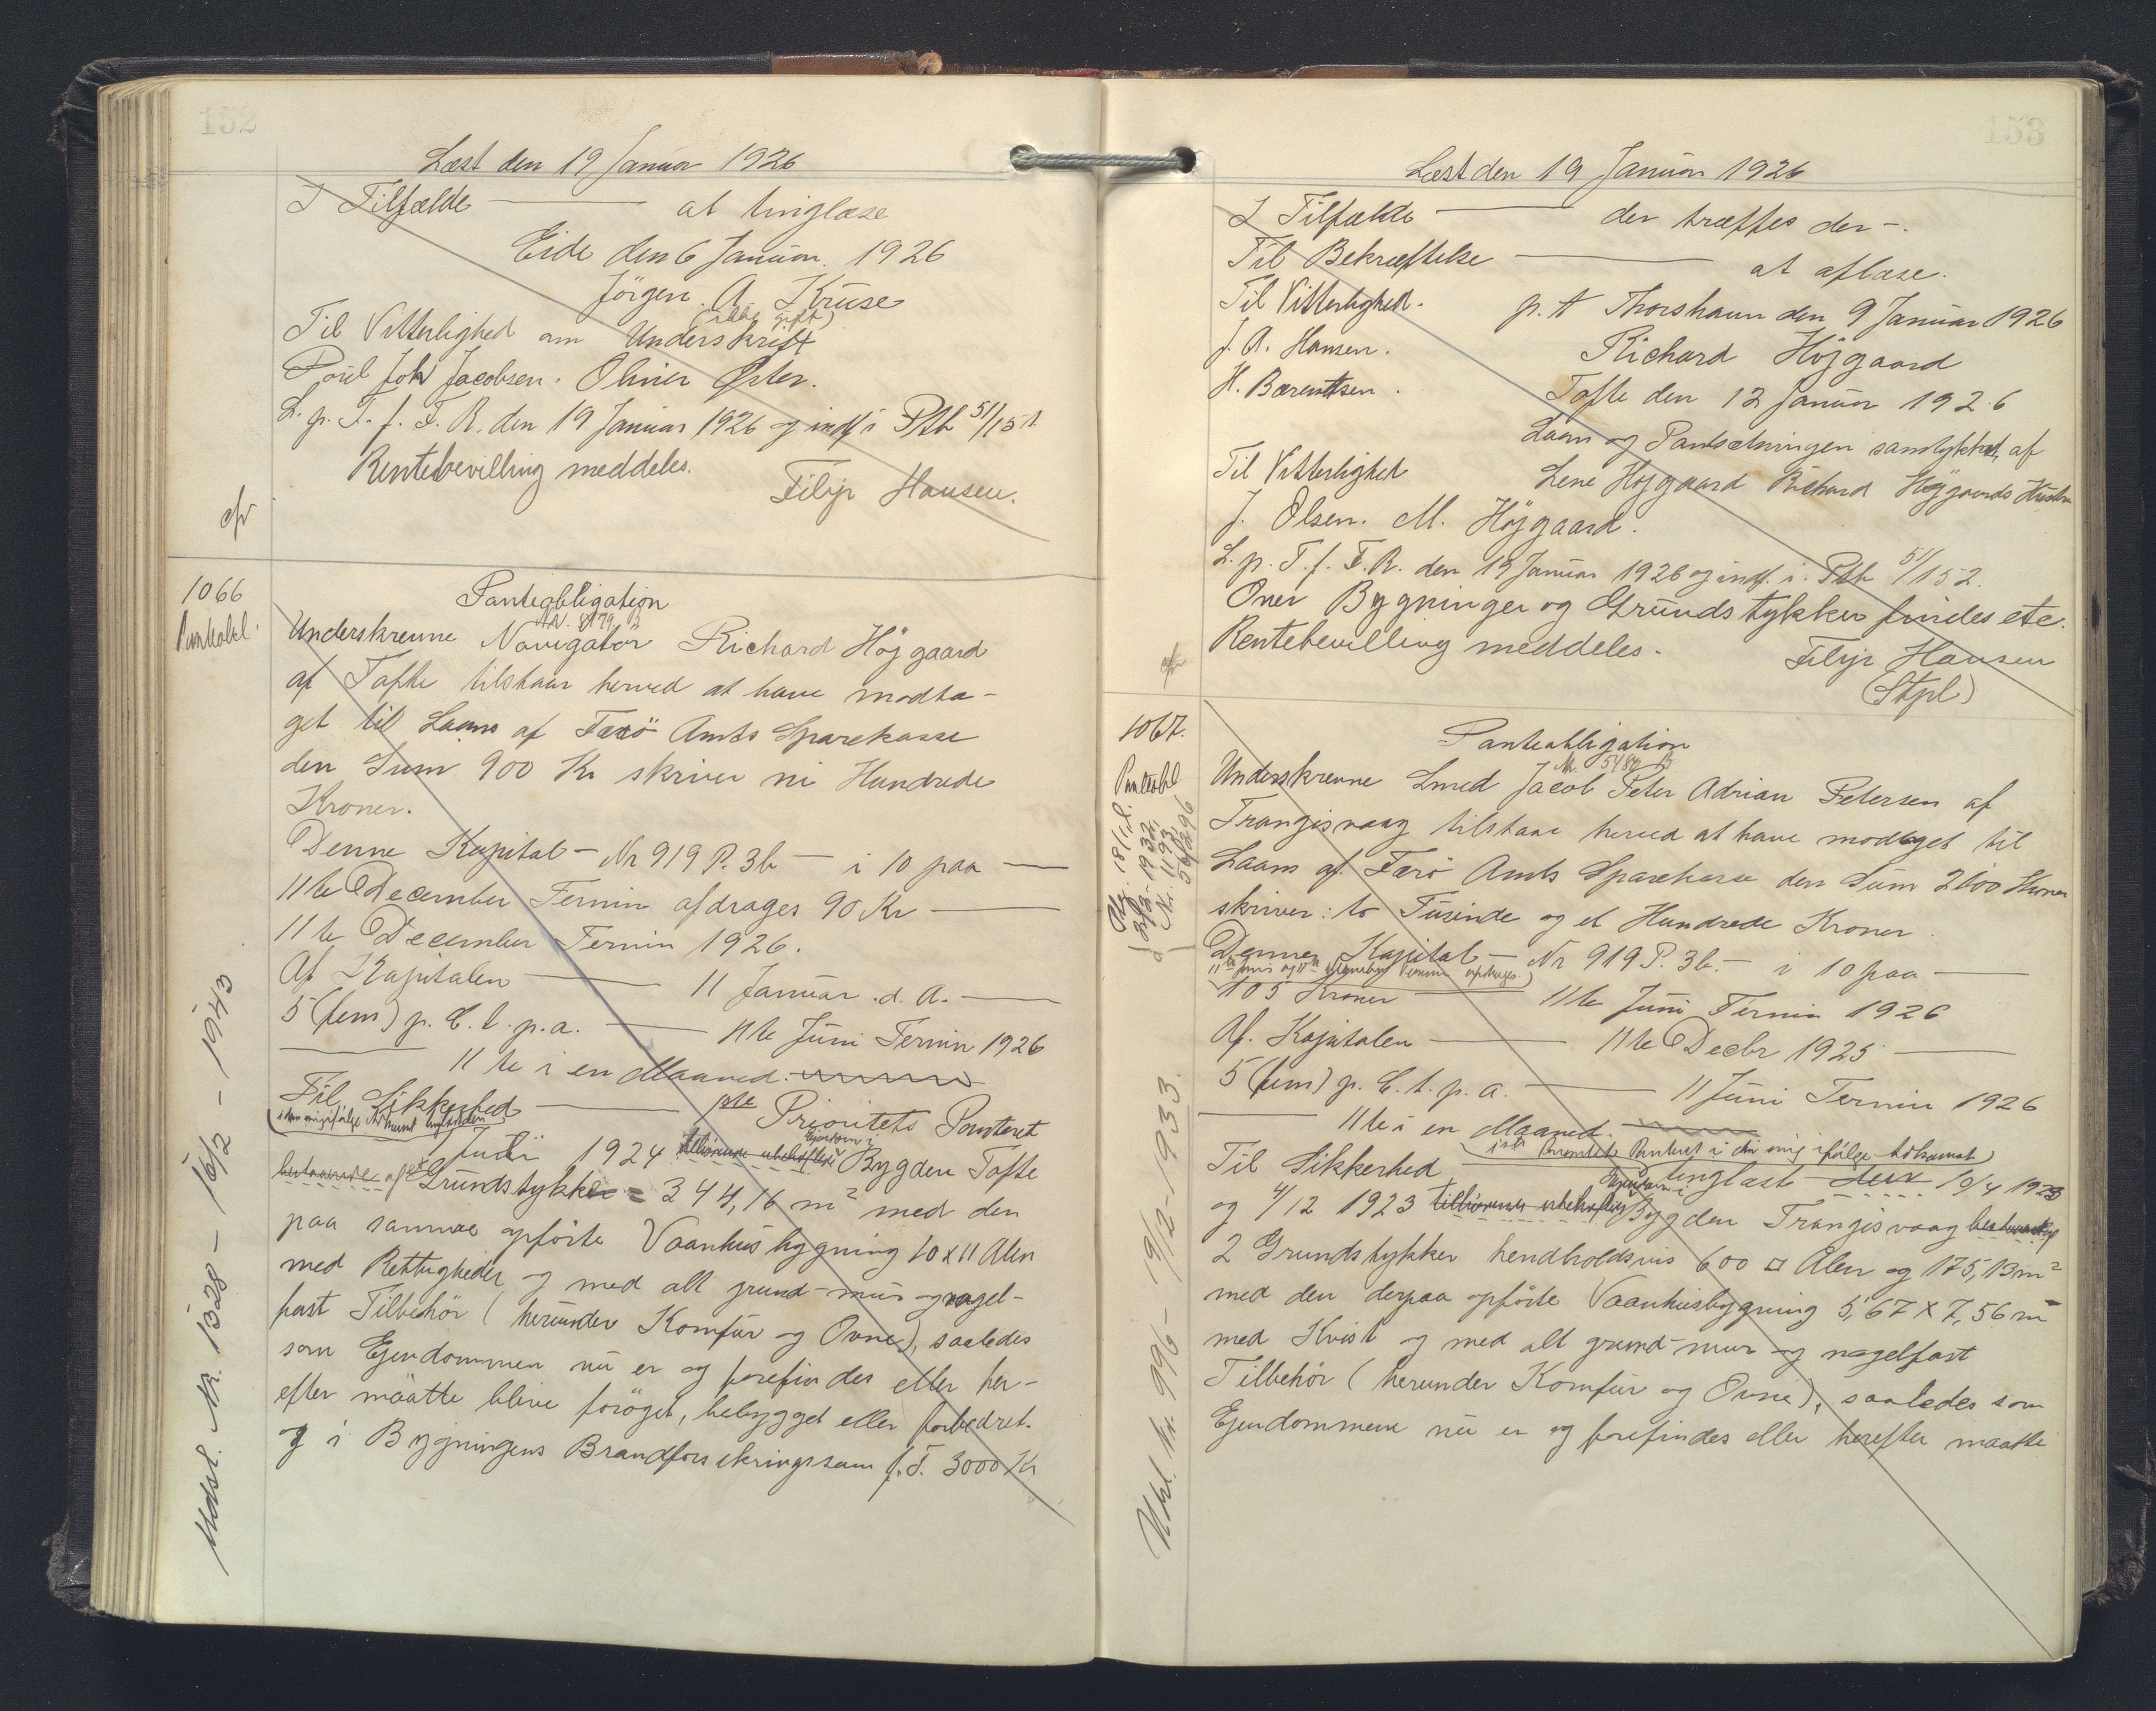 152
Læst den 19 Januar 1926
I Tilfælde — at tinglæse
Eide den 6 Januar. 1926
Jörgen. A. Kruse
(ikke gift)
Til Vitterlighed om Underskrift
Poul Joh Jacobsen. Oliver Øster.
L. p. T. f. F. R. den 19 Januar 1926 og indf i Ptb 51/151.
Rentebevilling meddeles.
Filip Hansen.
cfr
1066
Panteobl.
Panteobligation
Underskrevne Navigatör Richard Höjgaard
af Tofte tilstaar herved at have modta-
get til Laans af Færö Amts Sparekasse
den Sum 900 Kr skriver ni Hundrede
Kroner.
Denne Kapital — Nr 919 P. 3b — i 10 paa —
11te December Termin afdrages 90 Kr —
11te December Termin 1926.
Af Kapitalen — 11 Januar d. A. —
5 (fem) p. C. t. p. a. — 11te Juni Termin 1926
— 11te i en Maaned.
Til Sikkerhed — 1ste Prioritets Panteret
Juli 1924 tilhörende ubehæftede Ejendom i Bygden Tofte
bestaaende af et Grundstykke = 344,16 m² med den
paa samme opförte Vaanhusbygning 10 x 11 Alen
med Rettigheder og med alt grund- mur- og nagel-
fast Tilbehör (herunder Komfur og Ovne), saaledes
som Ejendommen nu er og forefindes eller her-
efter maatte blive foröget, bebygget eller forbedret.
og i Bygningens Brandforsikringssum f. T. 3000 Kr
Udsl. Nr. 1328 - 16/2 - 1943
153
Læst den 19 Januar 1926
I Tilfælde — der træffes der -.
Til Bekræftelse — at aflæse.
Til Vitterlighed. p. t Thorshavn den 9 Januar 1926
J. A. Hansen. Richard Höjgaard
H. Bærentsen. Tofte den 12 Januar 1926
Laan og Pantsætningen samtykket af
Til Vitterlighed Lene Höjgaard Richard Höjgaards Hustru
J. Olsen. M. Höjgaard.
L. p. T. f. F. R. den 19 Januar 1926 og indf. i. Ptb 51/152.
Over Bygninger og Grundstykker findes etc.
Rentebevilling meddeles.
Filip Hansen
(Stpl)
1067.
Panteobl
Panteobligation
Nr. 5480 B
Underskrevne Smed Jacob Peter Adrian Petersen af
Trangisvaag tilstaar herved at have modtaget til
Laans af Færö Amts Sparekasse den Sum 2100 Kroner
skriver: to Tusinde og et Hundrede Kroner.
Denne Kapital — Nr 919 P. 3b. — i 10 paa —
105 Kroner — 11te Juni Termin 1926
Af. Kapitalen — 11te Decbr 1925 —
5 (fem) p. C. t. p. a. — 11 Juni Termin 1926
— 11te i en Maaned.
(1ste Prioritets Panteret i den mig ifölge Adkomst)
Til Sikkerhed — tinglæst den 10/4 1923
og 4/12 1923 tilhörende ubehæftede Ejendom i Bygden Trangisvaag bestaaende af
2 Grundstykker hendholdsvis 600 □ Alen og 175,13 m²
med den derpaa opförte Vaanhusbygning 5,67 X 7,56 m
med Kvist og med alt grund- mur og nagelfast
Tilbehör (herunder Komfur og Ovne), saaledes som
Ejendommene nu er og forefindes eller herefter maatte
Udsl. Nr. 996 - 19/12 - 1933.